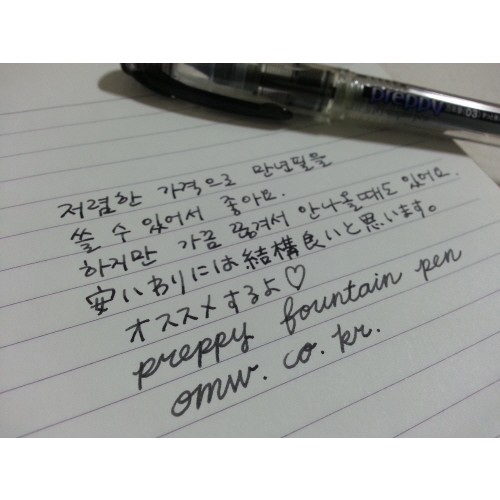 preppy
03
저렴한 가격으로 만년필을
쓸 수 있어서 좋아요.
하지만 가끔 굶겨서 안나올때도 있어요.
安いわりには結構良いと思います。
オススメするよ♡
preppy fountain pen
omw.co.kr.